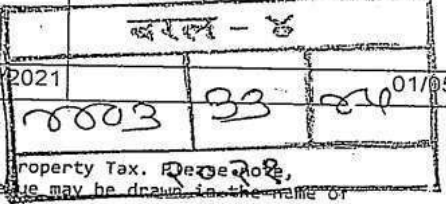 बरल - ४
2021 01/05
३३
roperty Tax. Please note,
२०२१
ue may be drawn in the name of